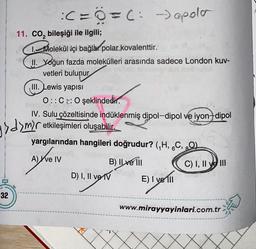 :C=Ö=C: → apolar
11. CO₂ bileşiği ile ilgili;
I. Molekül içi bağlar polar kovalenttir.
II. Yoğun fazda molekülleri arasında sadece London kuv-
vetleri bulunur.
III. Lewis yapısı
O::C::O şeklindedir.
IV. Sulu çözeltisinde indüklenmiş dipol-dipol ve iyon-dipol
etkileşimleri oluşabilir.
yargılarından hangileri doğrudur? (₁H, ₆C, ₈O)
A) I ve IV
B) II ve III
C) I, II ve III
D) I, II ve IV
E) I ve III
32
www.mirayyayinlari.com.tr